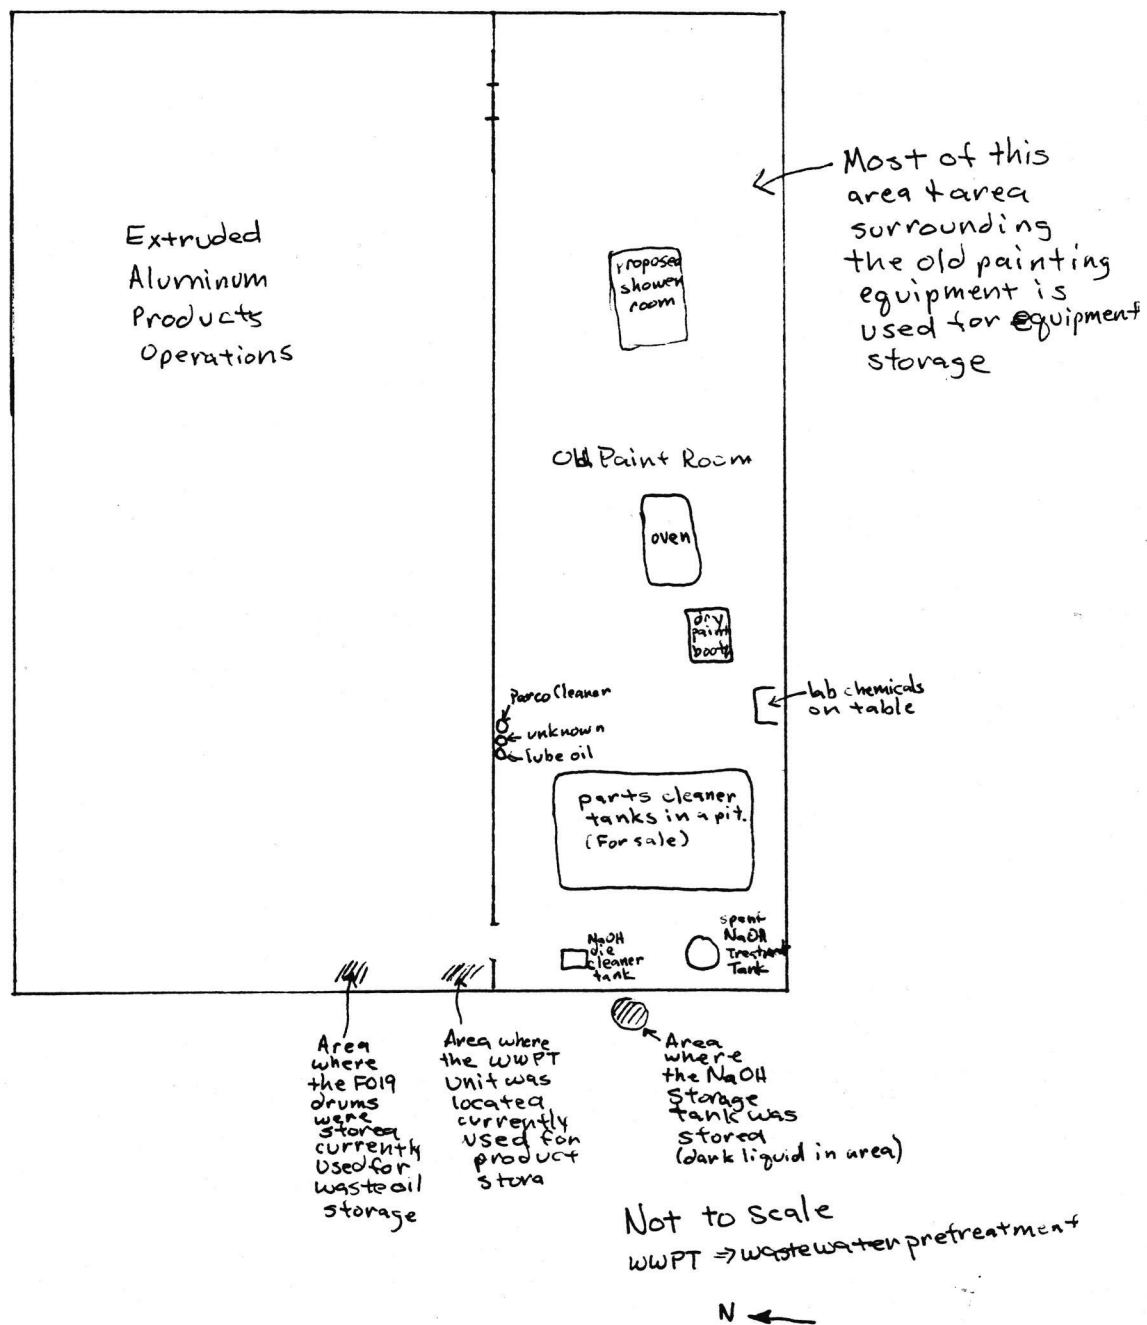 Most of this
area + area
surrounding
the old painting
equipment is
used for equipment
storage
Extruded
Aluminum
Products
Operations
Proposed
shower
room
Old Paint Room
oven
dry
paint
booth
Parco Cleaner
unknown
lube oil
lab chemicals
on table
parts cleaner
tanks in a pit.
(For sale)
NaOH
die
cleaner
tank
spent
NaOH
Treatment
Tank
Area
where
the F019
drums
were
stored
currently
used for
waste oil
storage
Area where
the WWPT
Unit was
located
currently
used for
product
stora
Area
where
the NaOH
Storage
tank was
stored
(dark liquid in area)
Not to scale
WWPT ⇒ wastewater pretreatment
N